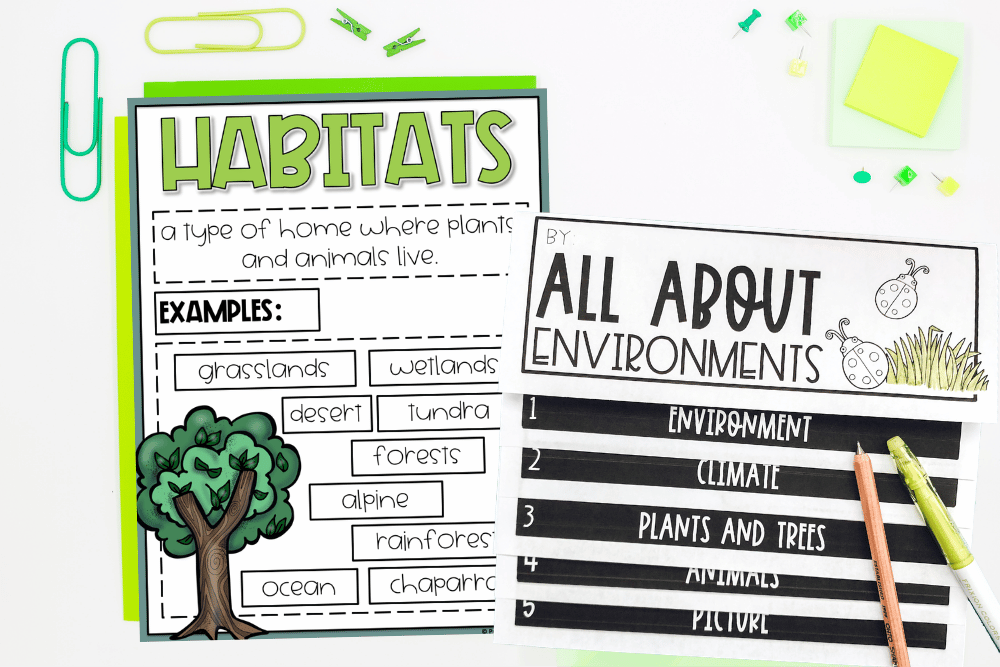 HABITATS
a type of home where plants
and animals live.
EXAMPLES:
grasslands
wetlands
desert
tundra
forests
alpine
rainfores
ocean
chaparra
BY:
ALL ABOUT
ENVIRONMENTS
1 ENVIRONMENT
2 CLIMATE
3 PLANTS AND TREES
4 ANIMALS
5 PICTURE